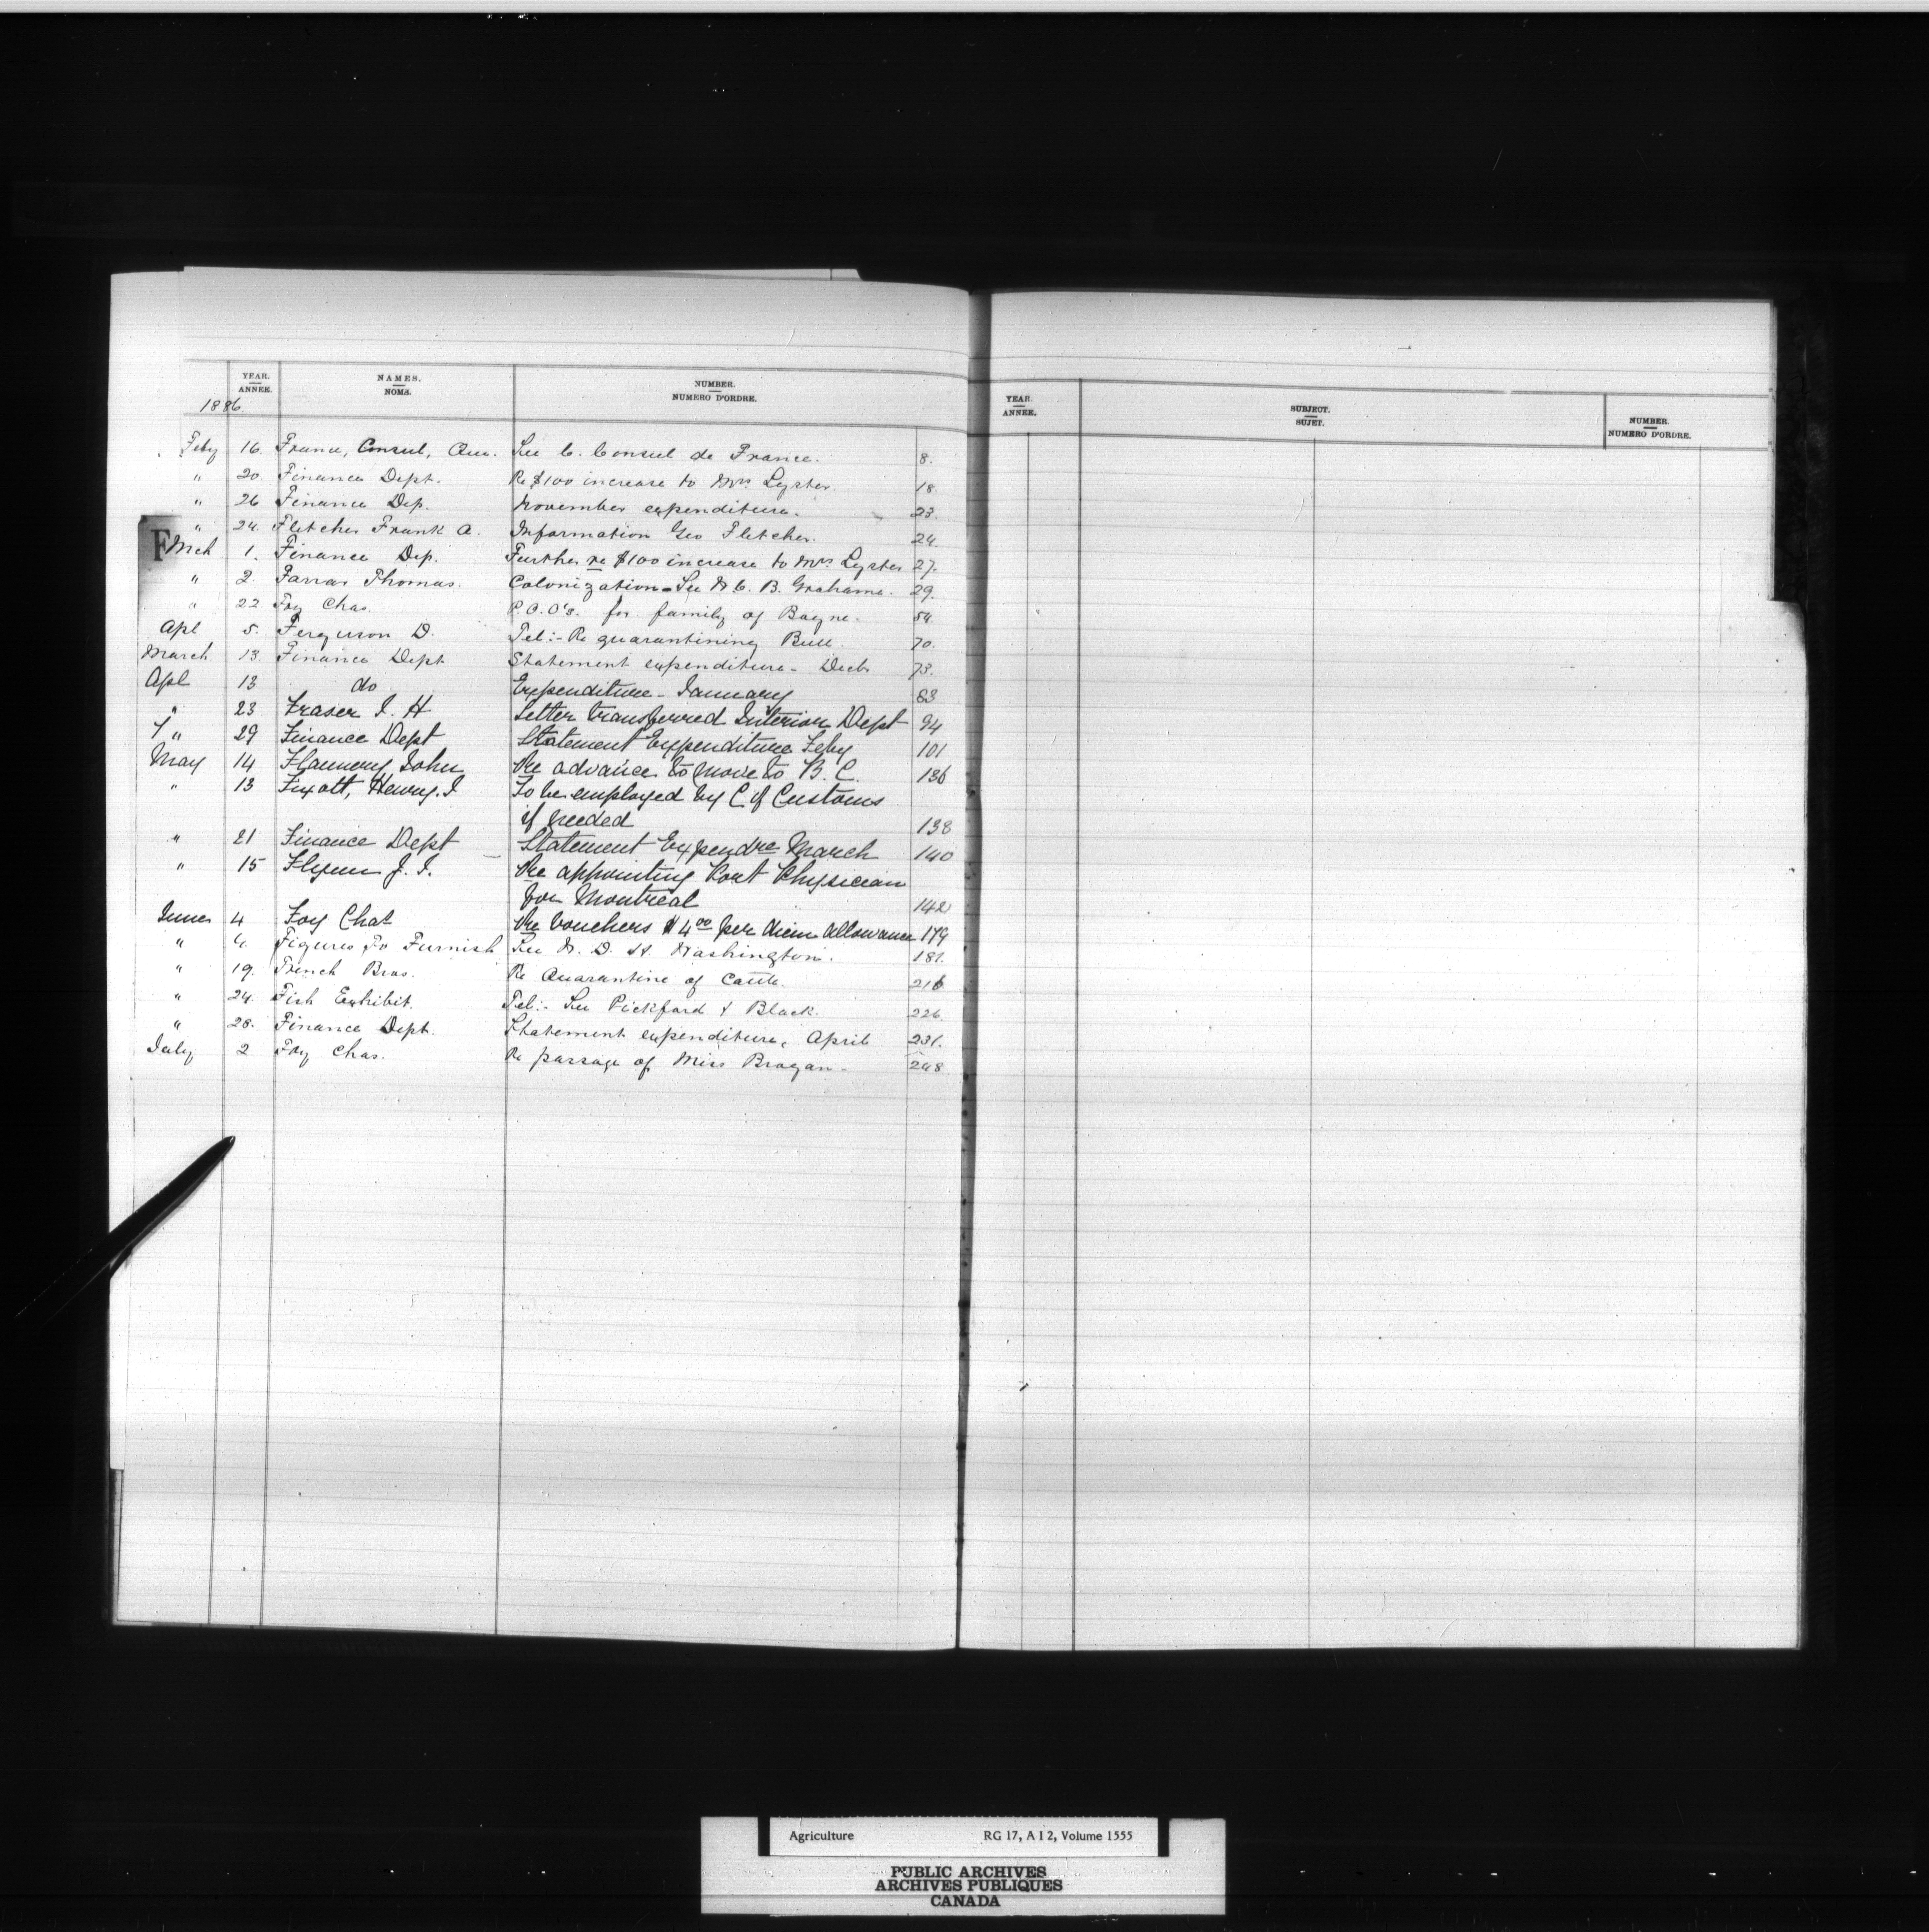 YEAR. NAMES. NUMBER.
ANNEE. NOMS. NUMERO D'ORDRE.
1886
Feby 16. France, Consul, Que. See C. Consul de France. 8.
" 20. Finance Dept. Re $100 increase to Mrs Lyster. 18.
" 26 Finance Dep. November expenditure. 23.
" 24. Fletcher Frank A. Information Geo Fletcher. 24.
F
Mch 1. Finance Dep. Further re $100 increase to Mrs Lyster 27.
" 2. Farrar Thomas. Colonization - See W. C. B. Grahame. 29.
" 22 Foy Chas. P.O.O's. for family of Bayne. 54.
Apl 5. Ferguson D. Tel:- Re quarantining Bull. 70.
March 13. Finance Dept Statement expenditure - Decb 73.
Apl 13 do Expenditure - January 83
" 23 Fraser J. H Letter transferred Interior Dept 94
" 29 Finance Dept Statement Expenditure Feby 101
May 14 Flannery John Re advance to move to B. C. 136
" 13 Henry. J To be employed by C of Customs
if needed 138
" 21 Finance Dept Statement Expendre March 140
" 15 Flynn J. J. Re appointing Port Physician
for Montreal 142
June 4 Foy Chas Re Vouchers $4.00 per diem allowance 179
" 4. Figures To Furnish See W. D. H. Washington. 181.
" 19. French Bros. Re Quarantine of Cattle. 216
" 24. Fish Exhibit. Tel:- See Pickford & Black. 226.
" 28. Finance Dept. Statement expenditure, April 231.
July 2 Foy Chas. Re passage of Miss Brogan - 248.
YEAR. SUBJECT. NUMBER.
ANNÉE. SUJET. NUMERO D'ORDRE.
Agriculture RG 17, A I 2, Volume 1555
PUBLIC ARCHIVES
ARCHIVES PUBLIQUES
CANADA